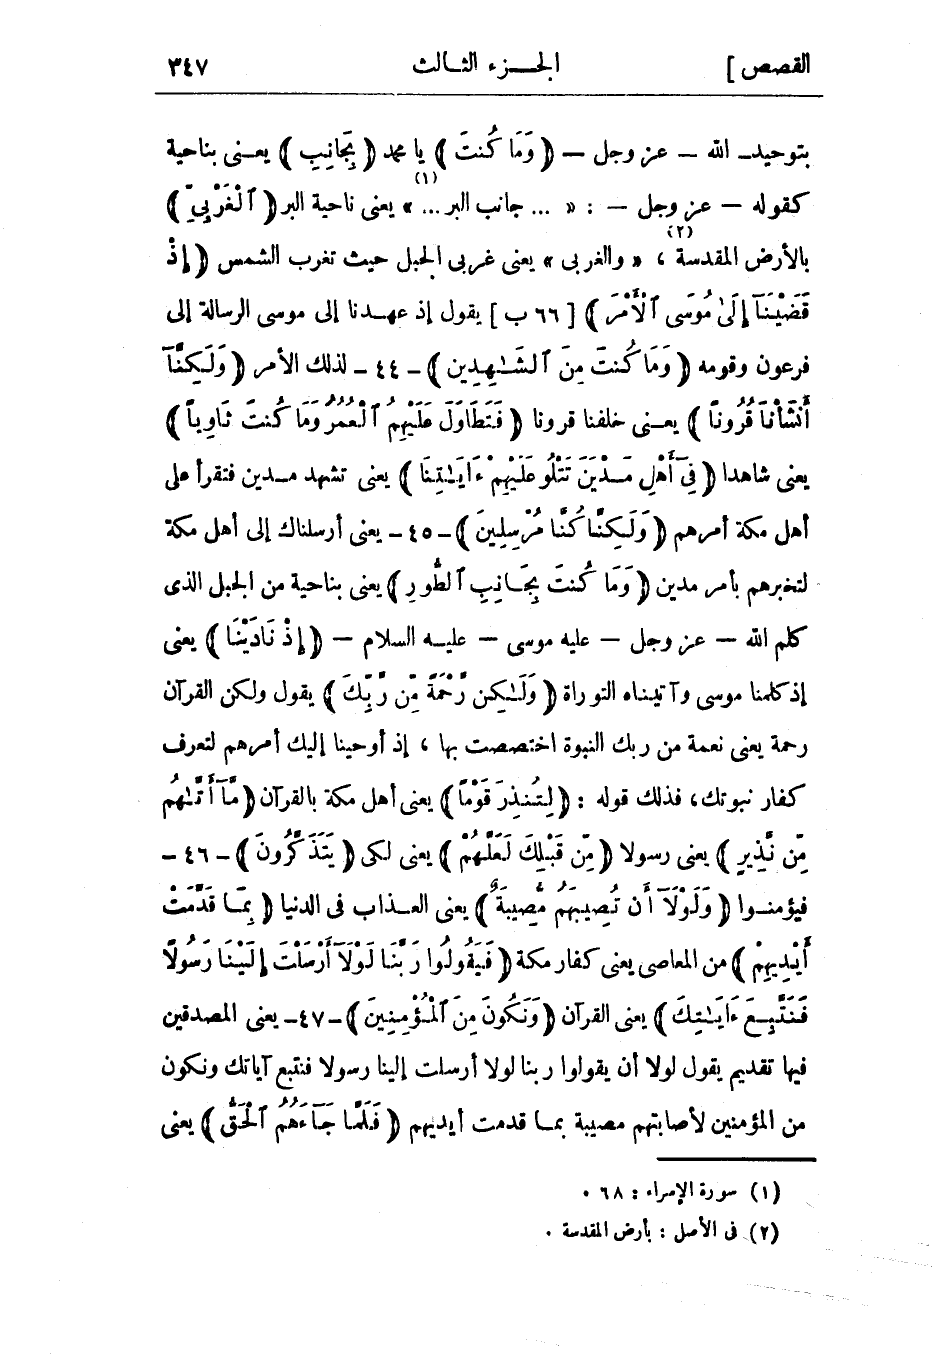 القصص ] الجزء الثالث ٣٤٧
بتوحيد الله — عز وجل — ﴿ وَمَا كُنتَ ﴾ يا محمد ﴿ بِجَانِبِ ﴾ يعنى بناحية
كقوله — عز وجل — : « ... جانب البر ... » (١) يعنى ناحية البر ﴿ ٱلْغَرْبِيِّ ﴾
بالأرض المقدسة (٢) ، « والغربى » يعنى غربى الجبل حيث تغرب الشمس ﴿ إِذْ
قَضَيْنَآ إِلَىٰ مُوسَى ٱلْأَمْرَ ﴾ [ ٦٦ ب ] يقول إذ عهدنا إلى موسى الرسالة إلى
فرعون وقومه ﴿ وَمَا كُنتَ مِنَ ٱلشَّـٰهِدِينَ ﴾ - ٤٤ - لذلك الأمر ﴿ وَلَـٰكِنَّآ
أَنشَأْنَا قُرُونًا ﴾ يعنى خلفنا قرونا ﴿ فَتَطَاوَلَ عَلَيْهِمُ ٱلْعُمُرُ وَمَا كُنتَ ثَاوِيًا ﴾
يعنى شاهدا ﴿ فِىٓ أَهْلِ مَدْيَنَ تَتْلُو عَلَيْهِمْ ءَايَـٰتِنَا ﴾ يعنى تشهد مدين فتقرأ على
أهل مكة أمرهم ﴿ وَلَـٰكِنَّا كُنَّا مُرْسِلِينَ ﴾ - ٤٥ - يعنى أرسلناك إلى أهل مكة
لتخبرهم بأمر مدين ﴿ وَمَا كُنتَ بِجَانِبِ ٱلطُّورِ ﴾ يعنى بناحية من الجبل الذى
كلم الله — عز وجل — عليه موسى — عليه السلام — ﴿ إِذْ نَادَيْنَا ﴾ يعنى
إذ كلمنا موسى وآتيناه التوراة ﴿ وَلَـٰكِن رَّحْمَةً مِّن رَّبِّكَ ﴾ يقول ولكن القرآن
رحمة يعنى نعمة من ربك النبوة اختصصت بها ، إذ أوحينا إليك أمرهم لتعرف
كفار نبوتك ، فذلك قوله : ﴿ لِتُنذِرَ قَوْمًا ﴾ يعنى أهل مكة بالقرآن ﴿ مَّآ أَتَـٰهُم
مِّن نَّذِيرٍ ﴾ يعنى رسولا ﴿ مِّن قَبْلِكَ لَعَلَّهُمْ ﴾ يعنى لكى ﴿ يَتَذَكَّرُونَ ﴾ - ٤٦ -
فيؤمنوا ﴿ وَلَوْلَآ أَن تُصِيبَهُم مُّصِيبَةٌ ﴾ يعنى العذاب فى الدنيا ﴿ بِمَا قَدَّمَتْ
أَيْدِيهِمْ ﴾ من المعاصى يعنى كفار مكة ﴿ فَيَقُولُوا رَبَّنَا لَوْلَآ أَرْسَلْتَ إِلَيْنَا رَسُولًا
فَنَتَّبِعَ ءَايَـٰتِكَ ﴾ يعنى القرآن ﴿ وَنَكُونَ مِنَ ٱلْمُؤْمِنِينَ ﴾ - ٤٧ - يعنى المصدقين
فيها تقديم يقول لولا أن يقولوا ربنا لولا أرسلت إلينا رسولا فنتبع آياتك ونكون
من المؤمنين لأصابتهم مصيبة بما قدمت أيديهم ﴿ فَلَمَّا جَآءَهُمُ ٱلْحَقُّ ﴾ يعنى
(١) سورة الإسراء : ٦٨ .
(٢) فى الأصل : بأرض المقدسة .